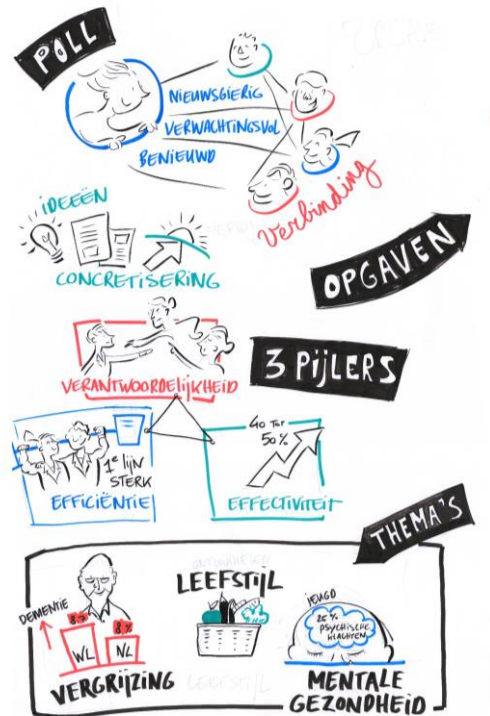 POLL
NIEUWSGIERIG
VERWACHTINGSVOL
BENIEUWD
Verbinding
IDEEËN
CONCRETISERING
OPGAVEN
3 PIJLERS
VERANTWOORDELIJKHEID
1e LIJN
STERK
EFFICIËNTIE
40 TOT
50%
EFFECTIVITEIT
THEMA'S
DEMENTIE
WL
NL
VERGRIJZING
LEEFSTIJL
JEUGD
25%
PSYCHISCHE
KLACHTEN
MENTALE
GEZONDHEID